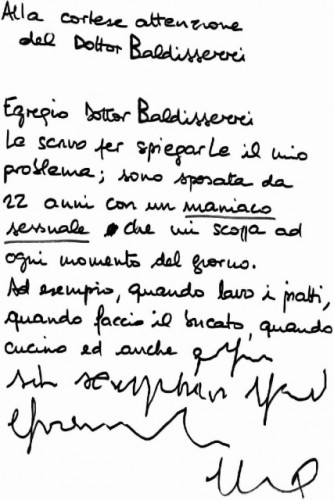 Alla cortese attenzione
del Dottor Baldisserri
Egregio Dottor Baldisserri
Le scrivo per spiegarLe il mio
problema; sono sposata da
22 anni con un maniaco
sessuale che mi scopa ad
ogni momento del giorno.
Ad esempio, quando lavo i piatti,
quando faccio il bucato, quando
cucino ed anche